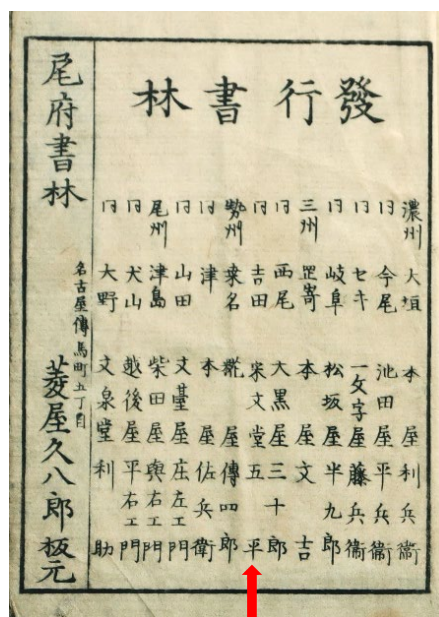 發行書林
濃州 大垣 本屋利兵衞
同 今尾 池田屋平兵衞
同 セキ 一文字屋藤兵衞
同 岐阜 松坂屋半九郎
三州 罡寄 本屋文吉
同 西尾 大黒屋三十郎
同 吉田 宋文堂五平
勢州 桑名 屋傳四郎
同 津 本屋佐兵衛
同 山田 文臺屋庄左エ門
尾州 津島 柴田屋與右エ門
同 犬山 越後屋平右エ門
同 大野 文泉堂利助
尾府書林
名古屋傳馬町五丁目
菱屋久八郎 板元